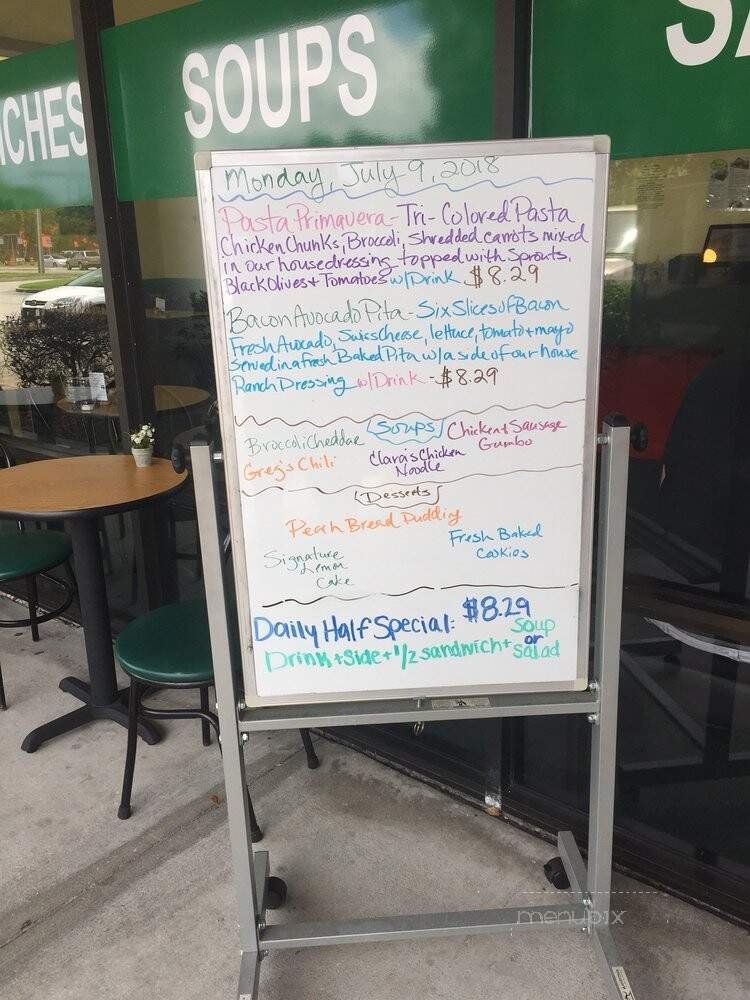 ICHES
SOUPS
SA
Monday, July 9, 2018
Pasta Primavera - Tri-Colored Pasta
Chicken Chunks, Broccoli, Shredded carrots mixed
in our housedressing topped with Sprouts,
Black Olives + Tomatoes w/Drink $8.29
Bacon Avocado Pita - Six Slices of Bacon
Fresh Avocado, Swiss Cheese, lettuce, tomato + mayo
Served in a fresh Baked Pita w/a side of our house
Ranch Dressing w/Drink - $8.29
Soups
Broccoli Cheddar
Chicken + Sausage
Gumbo
Greg's Chili
Clara's Chicken
Noodle
Desserts
Peach Bread Pudding
Signature
Lemon
Cake
Fresh Baked
Cookies
Daily Half Special: $8.29
Drink + Side + 1/2 sandwich + Soup
or
Salad
menupix